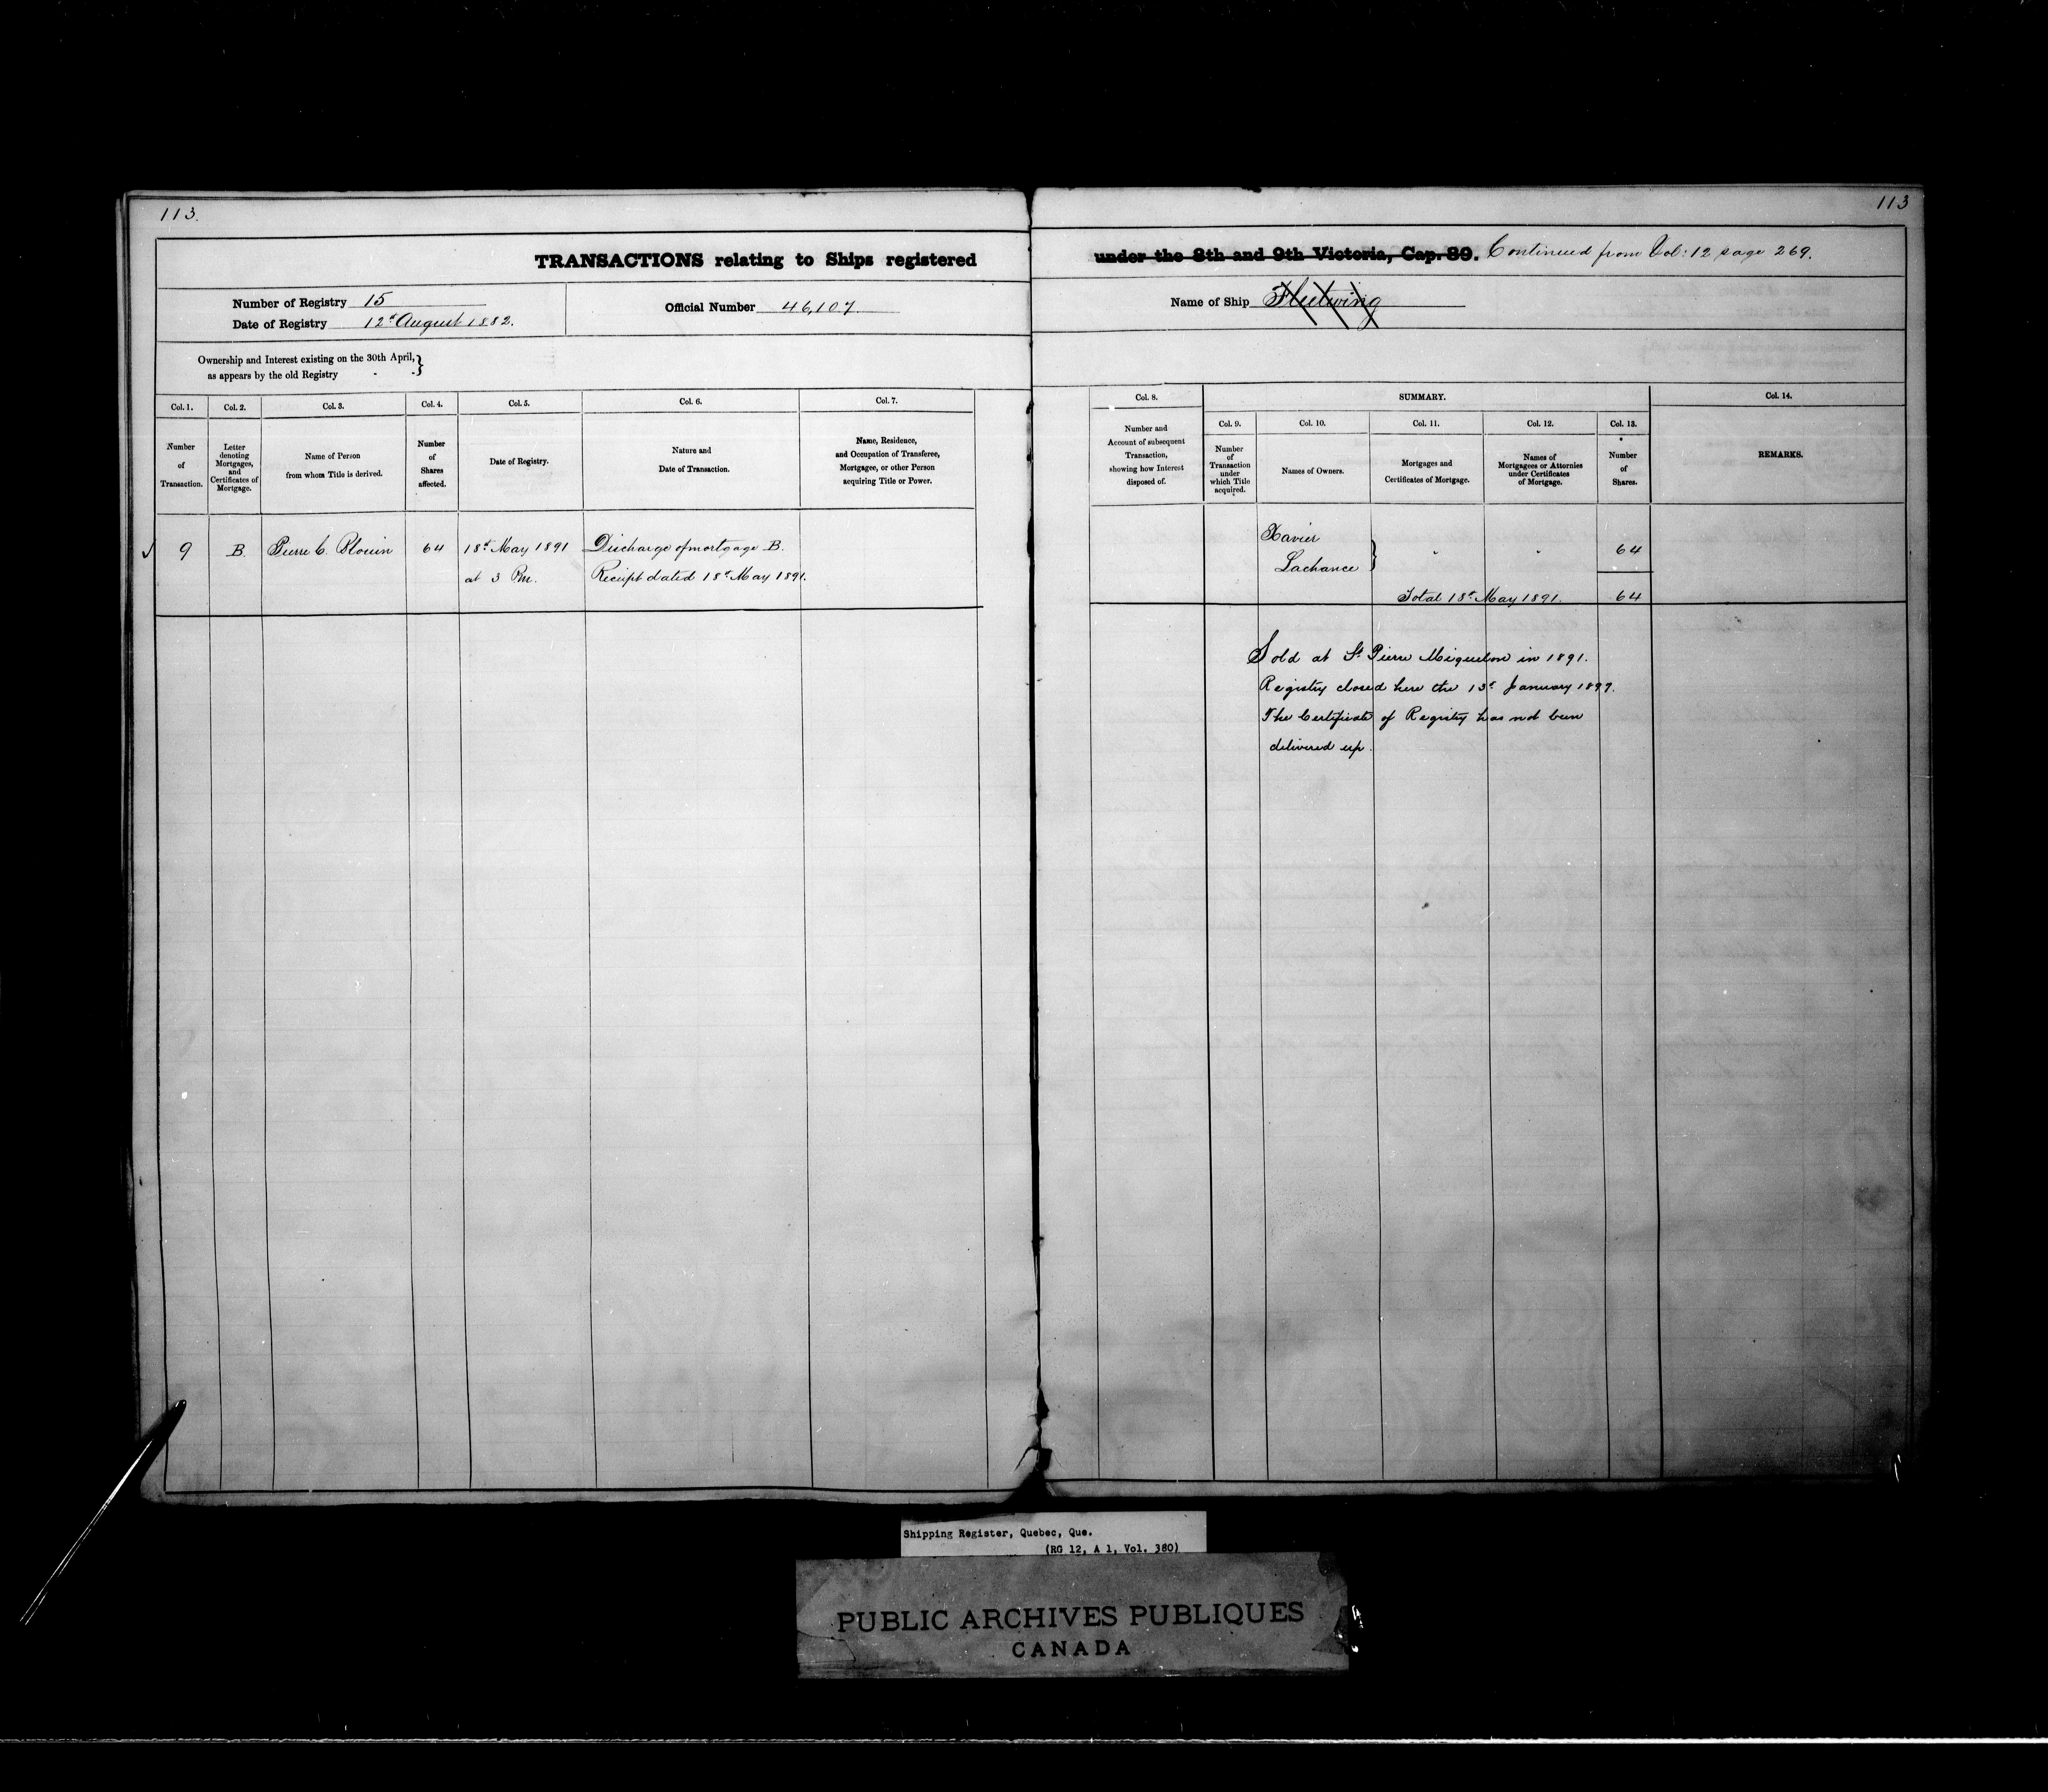 113.
113
TRANSACTIONS relating to Ships registered under the 8th and 9th Victoria, Cap. 89. Continued from Vol: 12 page 269.
Number of Registry 15
Date of Registry 12th August 1882.
Official Number 46,107
Name of Ship Fleetwing
Ownership and Interest existing on the 30th April,
as appears by the old Registry
Col. 1.
Number
of
Transaction.
Col. 2.
Letter
denoting
Mortgages,
and
Certificates of
Mortgage.
Col. 3.
Name of Person
from whom Title is derived.
Col. 4.
Number
of
Shares
affected.
Col. 5.
Date of Registry.
Col. 6.
Nature and
Date of Transaction.
Col. 7.
Name, Residence,
and Occupation of Transferee,
Mortgagee, or other Person
acquiring Title or Power.
Col. 8.
Number and
Account of subsequent
Transaction,
showing how Interest
disposed of.
SUMMARY.
Col. 9.
Number
of
Transaction
under
which Title
acquired.
Col. 10.
Names of Owners.
Col. 11.
Mortgages and
Certificates of Mortgage.
Col. 12.
Names of
Mortgagees or Attornies
under Certificates
of Mortgage.
Col. 13.
Number
of
Shares.
Col. 14.
REMARKS.
9 B. Pierre C. Plouin 64 18th May 1891 Discharge of mortgage B.
at 3 Pm. Receipt dated 18th May 1891.
Xavier
Lachance } " " 64
Total 18th May 1891. 64
Sold at St Pierre Miquelon in 1891.
Registry closed here the 13th January 1897.
The Certificate of Registry has not been
delivered up.
Shipping Register, Quebec, Que.
(RG 12, A 1, Vol. 380)
PUBLIC ARCHIVES PUBLIQUES
CANADA